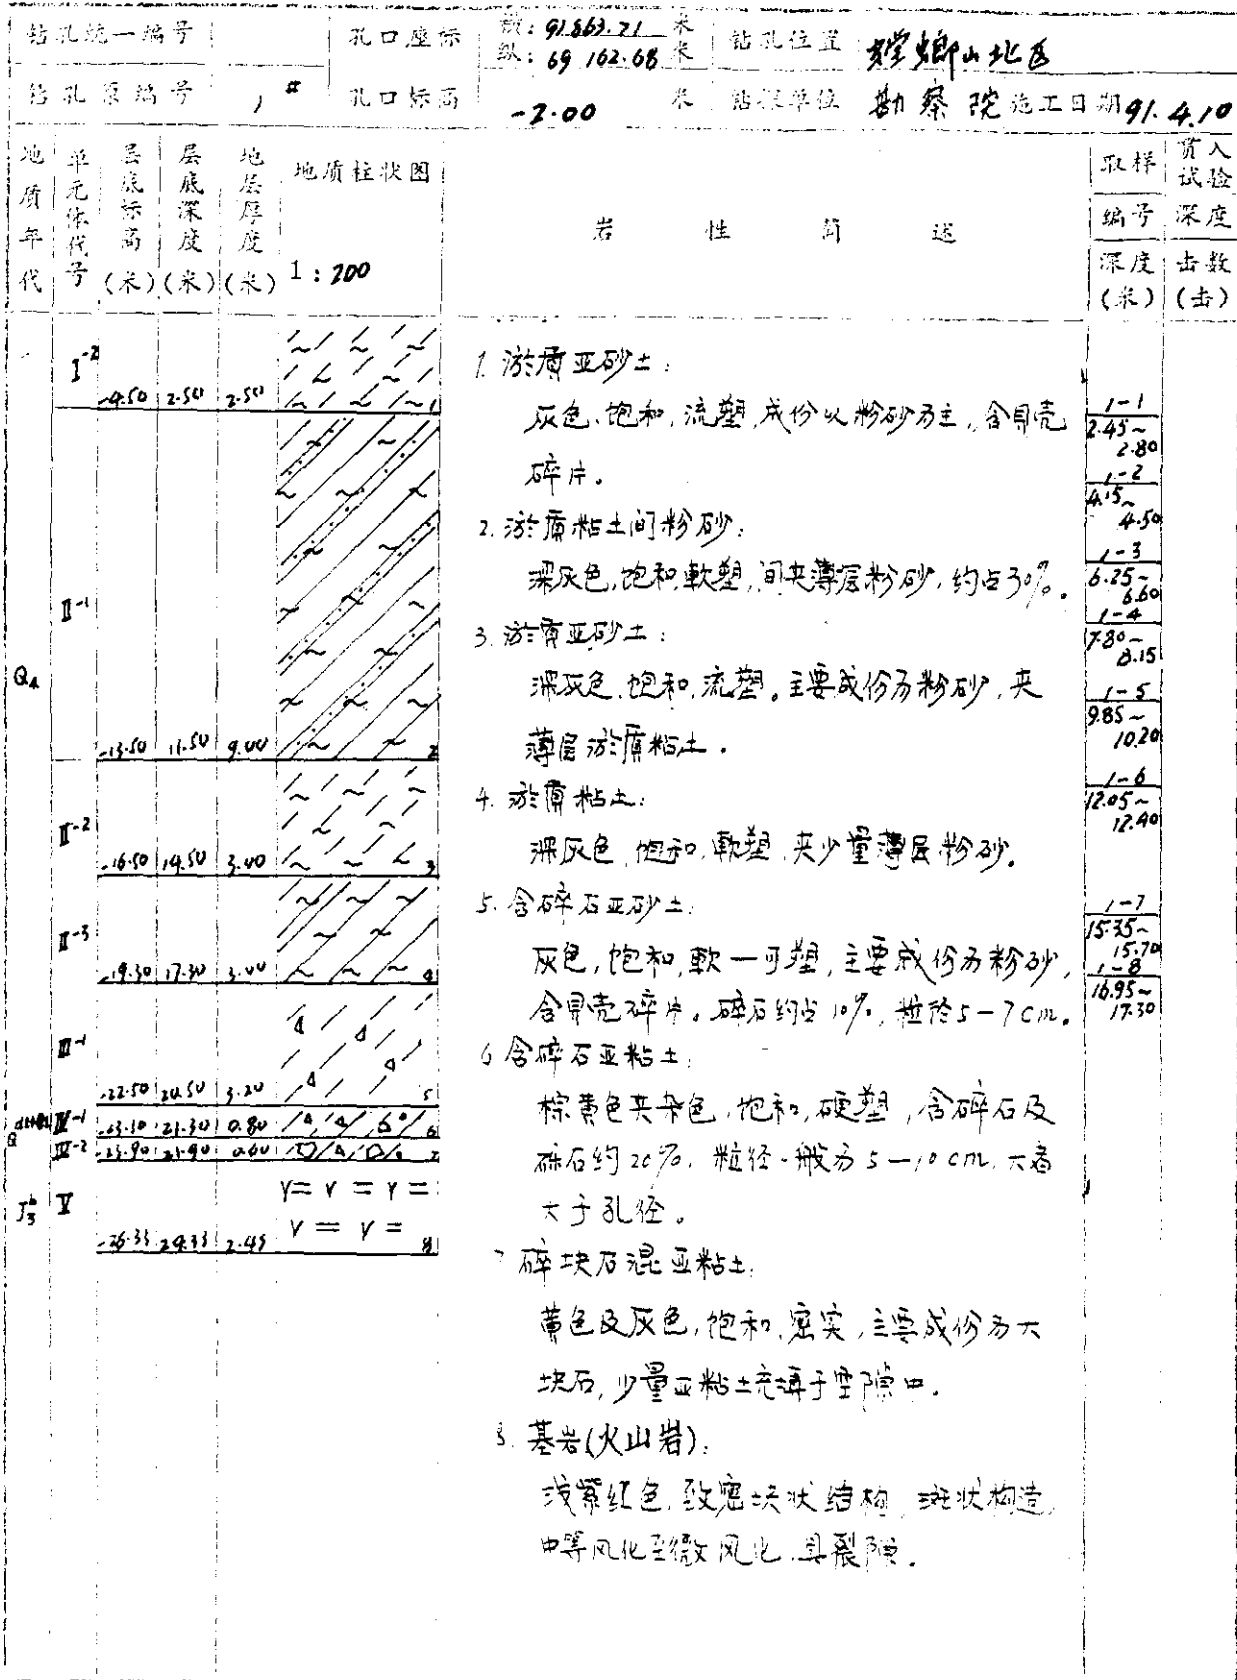 钻孔统一编号 孔口座标 横: 91863.71 米 钻孔位置 螳螂山北区
纵: 69162.68 米
钻孔原编号 1# 孔口标高 -2.00 米 钻探单位 勘察院 施工日期 91.4.10
地质年代 单元体代号 层底标高(米) 层底深度(米) 地层厚度(米) 地质柱状图 1:200 岩性简述 取样编号 深度(米) 贯入试验深度 击数(击)
I-2 -4.50 2.50 2.50 1
Q4 II-1 -13.50 11.50 9.00 2
II-2 -16.50 14.50 3.00 3
II-3 -19.30 17.30 3.00 4
III-1 -22.50 20.50 3.20 5
IV-1 21.30 0.80 6
IV-2 -23.90 21.90 0.60 7
V 2.45 8
1. 淤质亚砂土:
灰色、饱和, 流塑, 成份以粉砂为主, 含贝壳
碎片。
2. 淤质粘土间粉砂:
深灰色, 饱和, 軟塑, 间夹薄层粉砂, 约占30%。
3. 淤质亚砂土:
深灰色、饱和, 流塑。主要成份为粉砂, 夹
薄层淤质粘土.
4. 淤质粘土:
深灰色, 饱和, 軟塑, 夹少量薄层粉砂.
5. 含碎石亚砂土:
灰色, 饱和, 軟一可塑, 主要成份为粉砂,
含贝壳碎片。碎石约占10%, 粒径5-7cm.
6 含碎石亚粘土:
棕黄色夹杂色, 饱和, 硬塑, 含碎石及
砾石约20%. 粒径一般为5-10cm, 大者
大于孔径。
7 碎块石混亚粘土:
黄色及灰色, 饱和, 密实, 主要成份为大
块石, 少量亚粘土充填于空隙中.
8. 基岩(火山岩):
浅紫红色, 致密块状结构, 斑状构造,
中等风化至微风化, 具裂隙.
1-1
2.45~
2.80
1-2
4.15~
4.50
1-3
6.25~
6.60
1-4
7.80~
8.15
1-5
9.85~
10.20
1-6
12.05~
12.40
1-7
15.35~
15.70
1-8
16.95~
17.30